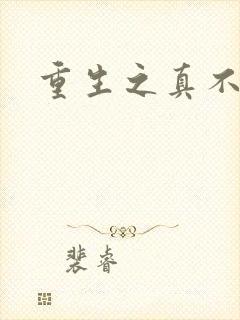 重生之真不
裴睿